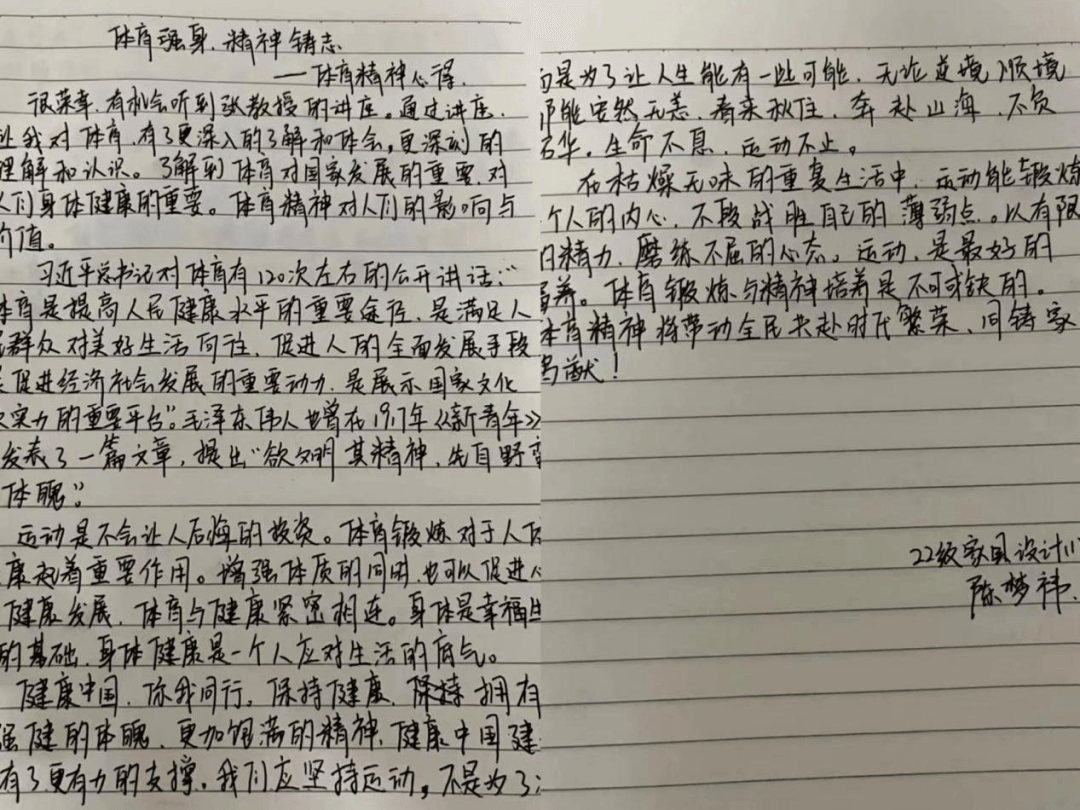 体育强身、精神铸志
——体育精神心得.
很荣幸,有机会听到张教授的讲座。通过讲座,
让我对体育,有了更深入的了解和体会,更深刻的
理解和认识。了解到体育对国家发展的重要,对
人们身体健康的重要。体育精神对人们的影响与
价值。
习近平总书记对体育有120次左右的公开讲话:“
体育是提高人民健康水平的重要途径,是满足人
民群众对美好生活向往,促进人的全面发展手段
是促进经济社会发展的重要动力,是展示国家文化
实力的重要平台”。毛泽东伟人也曾在1917年《新青年》
发表了一篇文章,提出“欲文明其精神,先自野蛮
体魄”。
运动是不会让人后悔的投资。体育锻炼对于人体
康起着重要作用。增强体质的同时,也可以促进心
健康发展,体育与健康紧密相连。身体是幸福生
的基础,身体健康是一个人应对生活的底气。
健康中国,你我同行。保持健康,保持拥有
强健的体魄,更加饱满的精神,健康中国建
有了更有力的支撑。我们应坚持运动,不是为了
而是为了让人生能有一些可能,无论逆境顺境
都能安然无恙,春来秋往,奔赴山海,不负
华,生命不息,运动不止。
在枯燥无味的重复生活中,运动能锻炼
个人的内心,不段战胜自己的薄弱点。以有限
的精力,磨练不屈的心态。运动,是最好的
养。体育锻炼与精神培养是不可或缺的。
体育精神将带动全民共赴时代繁荣,同铸家
猷!
22级家具设计(1)
陈梦祎.